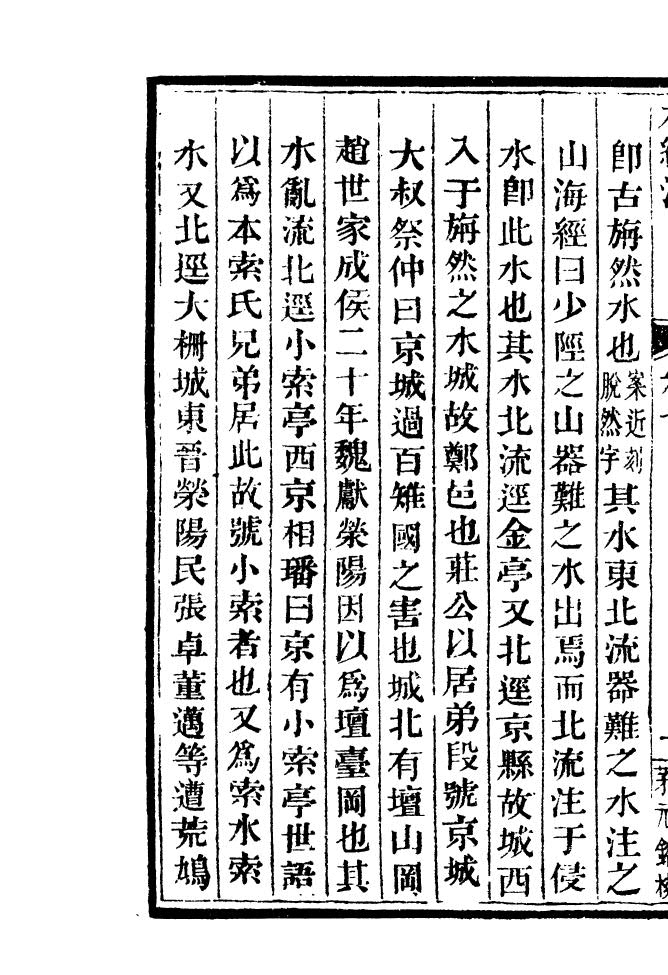 卽古旃然水也案近刻脫然字其水東北流器難之水注之
山海經曰少陘之山器難之水出焉而北流注于侵
水卽此水也其水北流逕金亭又北逕京縣故城西
入于旃然之水城故鄭邑也莊公以居弟段號京城
大叔祭仲曰京城過百雉國之害也城北有壇山岡
趙世家成侯二十年魏獻滎陽因以爲壇臺岡也其
水亂流北逕小索亭西京相璠曰京有小索亭世語
以爲本索氏兄弟居此故號小索者也又爲索水索
水又北逕大柵城東晉滎陽民張卓董邁等遭荒鳩